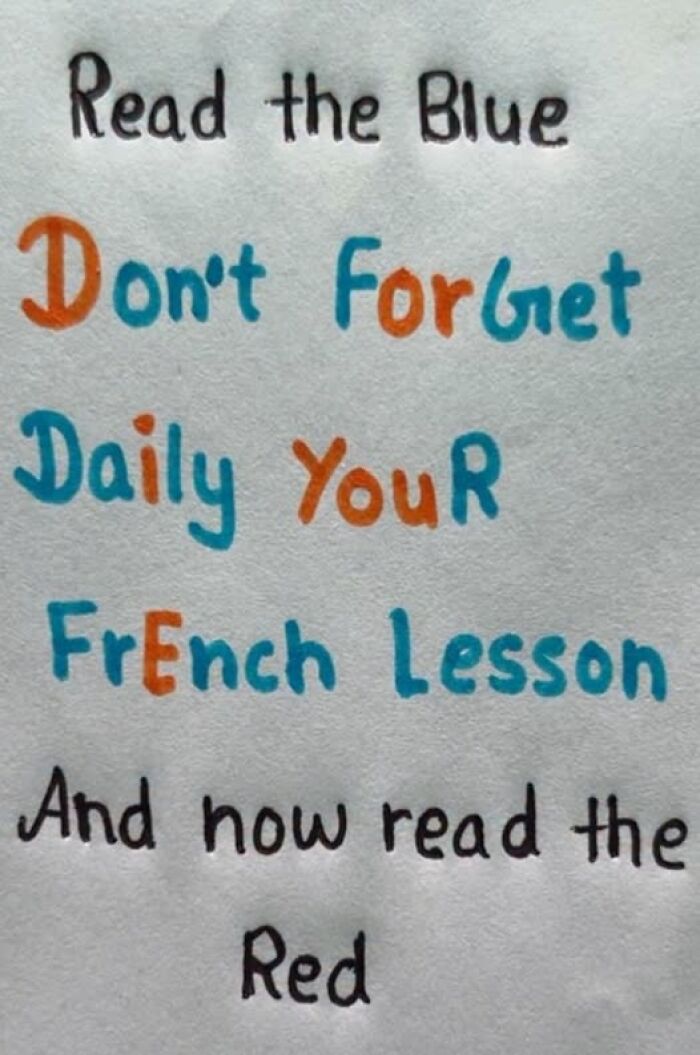 Read the Blue
Don't ForGet
Daily YouR
FrEnch Lesson
And now read the
Red